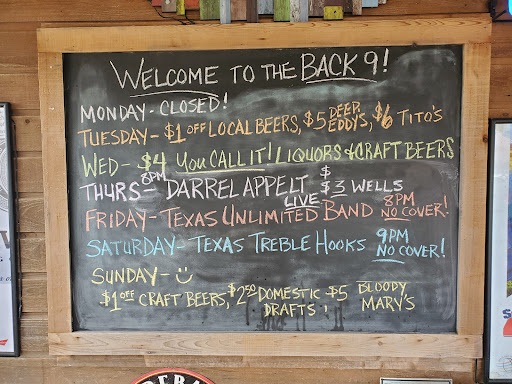 WELCOME TO THE BACK 9!
MONDAY - CLOSED!
TUESDAY - $1 OFF LOCAL BEERS, $5 DEEP EDDYS, $6 TITO'S
WED - $4 YOU CALL IT! LIQUORS & CRAFT BEERS
THURS - 8PM DARREL APPELT LIVE $ $3 WELLS
FRIDAY - TEXAS UNLIMITED BAND 8PM NO COVER!
SATURDAY - TEXAS TREBLE HOOKS 9PM NO COVER!
SUNDAY - :)
$1 OFF CRAFT BEERS, $2.50 DOMESTIC DRAFTS, $5 BLOODY MARY'S